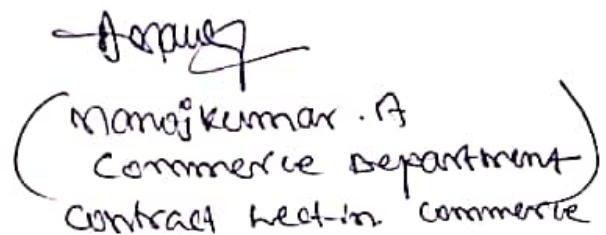 (Manojkumar . A
Commerce Department)
Contract Lect-in commerce